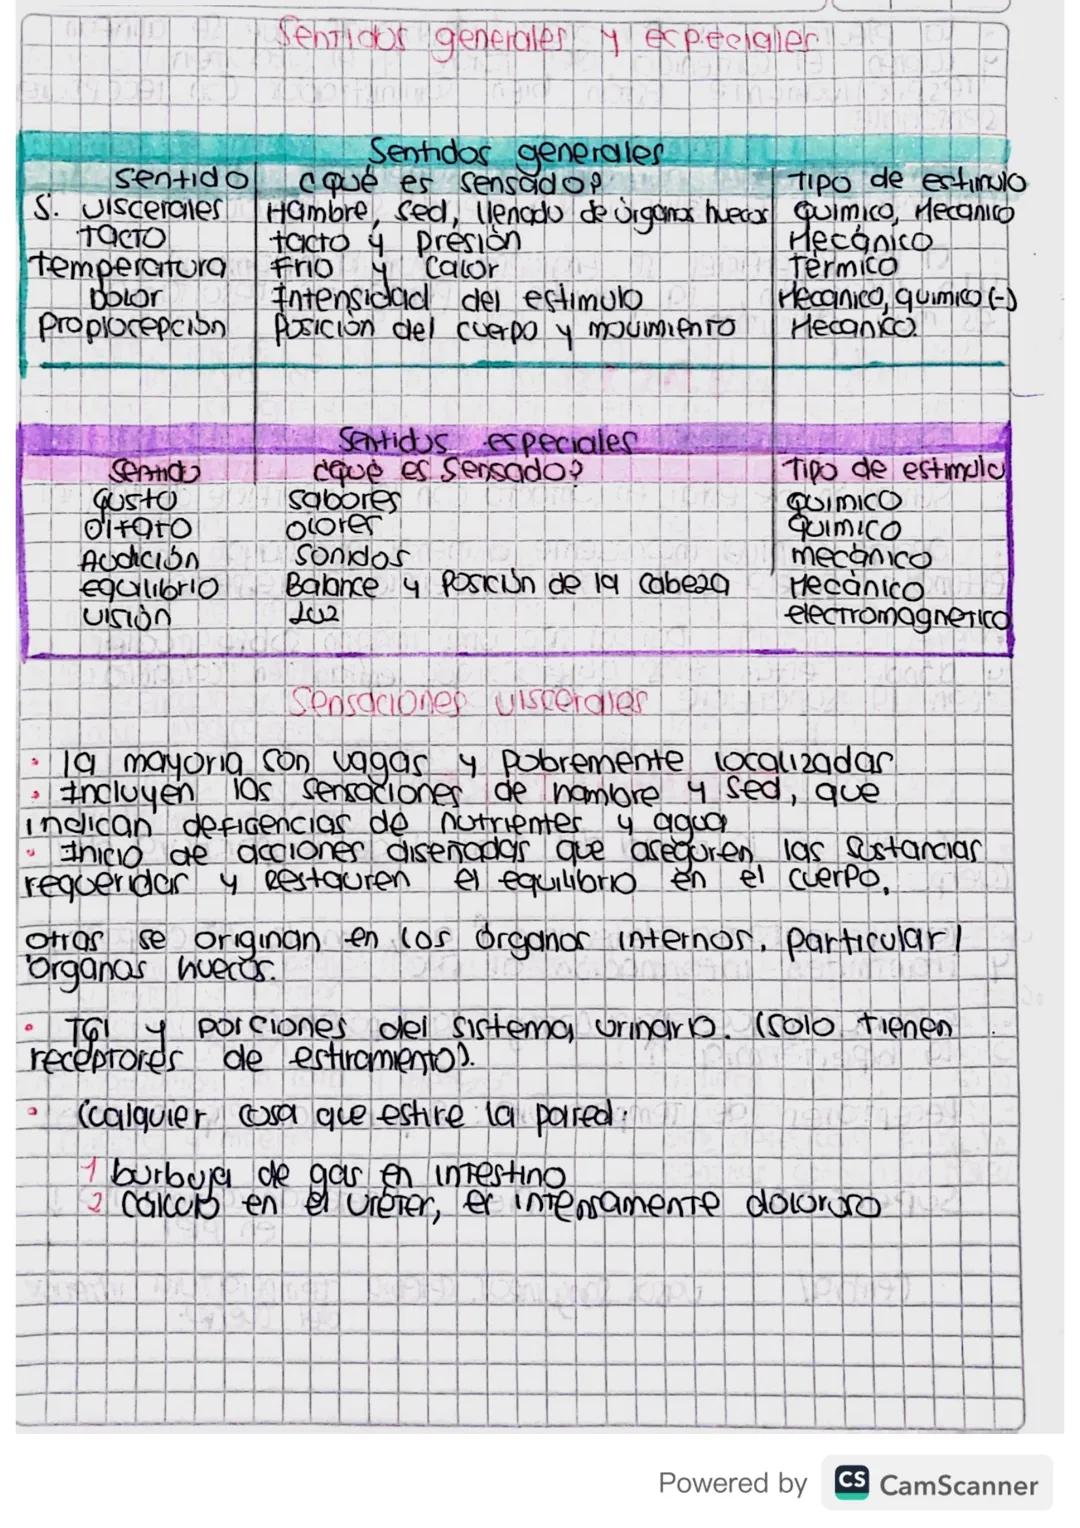 Sentidos generales y especiales
Sentidos generales
sentido ¿qué es sensado? Tipo de estimulo
S. viscerales Hambre, sed, llenado de órganos huecos Químico, Mecánico
Tacto tacto y presión Mecánico
temperatura Frio y Calor Térmico
Dolor Intensidad del estimulo Mecánico, químico (-)
Propiocepción Posición del cuerpo y movimiento Mecánico.
Sentidos especiales
Sentido ¿qué es Sensado? Tipo de estimulo
gusto sabores químico
olfato olores químico
Audición sonidos mecánico
equilibrio Balance y Posición de la cabeza Mecánico
visión Luz electromagnetico
Sensaciones viscerales
• la mayoria son vagas y pobremente localizadas
• Incluyen las sensaciones de hambre y sed, que
indican deficencias de nutrientes y agua
• Inicio de acciones diseñadas que aseguren las sustancias
requeridas y Restauren el equilibrio en el cuerpo.
otras se originan en los órganos internos, particular/
órganos huecos.
• TGI y porciones del sistema urinario. (solo tienen
receptores de estiramento).
• Cualquier cosa que estire la pared:
1 burbuja de gas en intestino
2 Cálculo en el uréter, es intensamente doloroso
Powered by CS CamScanner